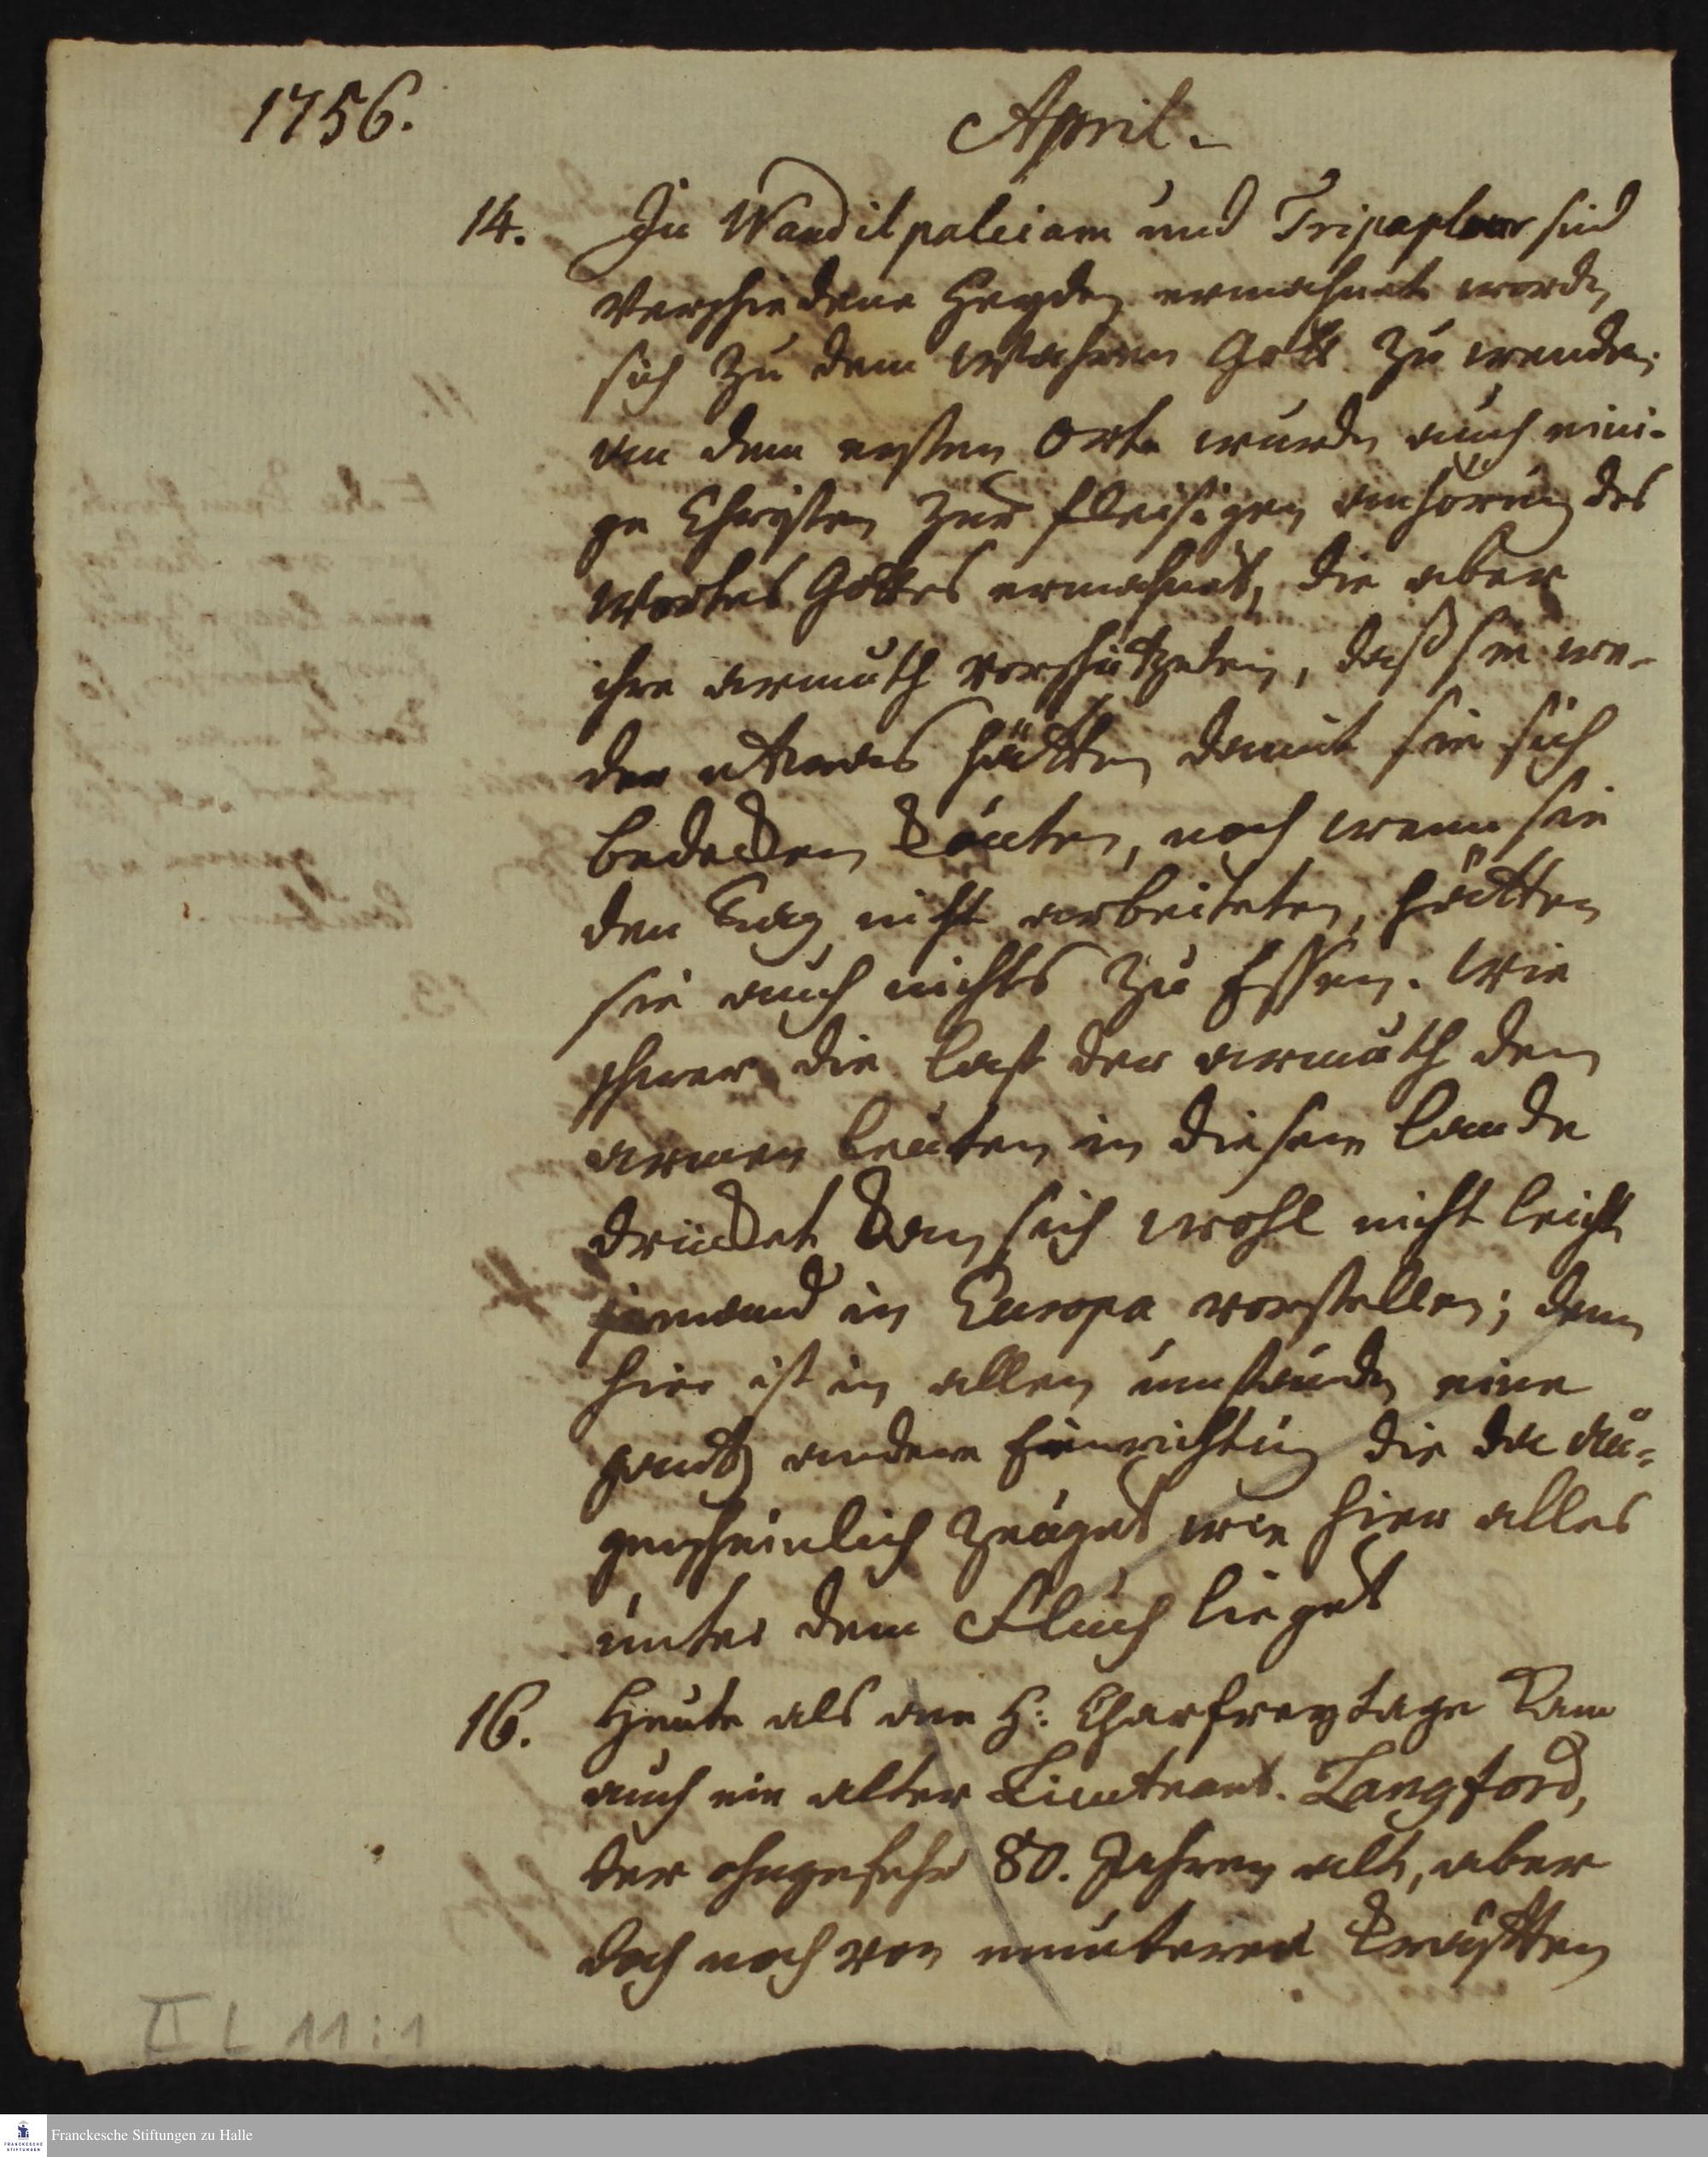 1756.
April.
14. In Wandilpaleiam und Tripapluur sind
verschiedene Heyden ermahnet worden
sich zu dem wahren Gott zu wenden.
an dem ersten Orte wurden auch eini-
ge Christen zur fleisigen anhörung des
Wortes Gottes ermahnet, die aber
ihre armuth vorschützeten, daß sie we-
der etwas hätten damit sie sich
bedecken könten, noch wenn sie
den Tag nicht arbeiteten, hätten
sie auch nichts zu Essen. Wie
schwer die last der armuth den
armen leuten in diesem lande
drücket kan sich wohl nicht leicht
jemand in Europa vorstellen; denn
hier ist in allen umständen eine
gantz andere Einrichtung die da au-
genscheinlich zeuget wie hier alles
unter dem Fluch lieget
16. Heute als am H: Charfreytage kam
auch ein alter Lieutenant. Langford,
der ohngefehr 80. Jahren alt, aber
doch noch von munteren Kräfften
II L 11:1
Franckesche Stiftungen zu Halle